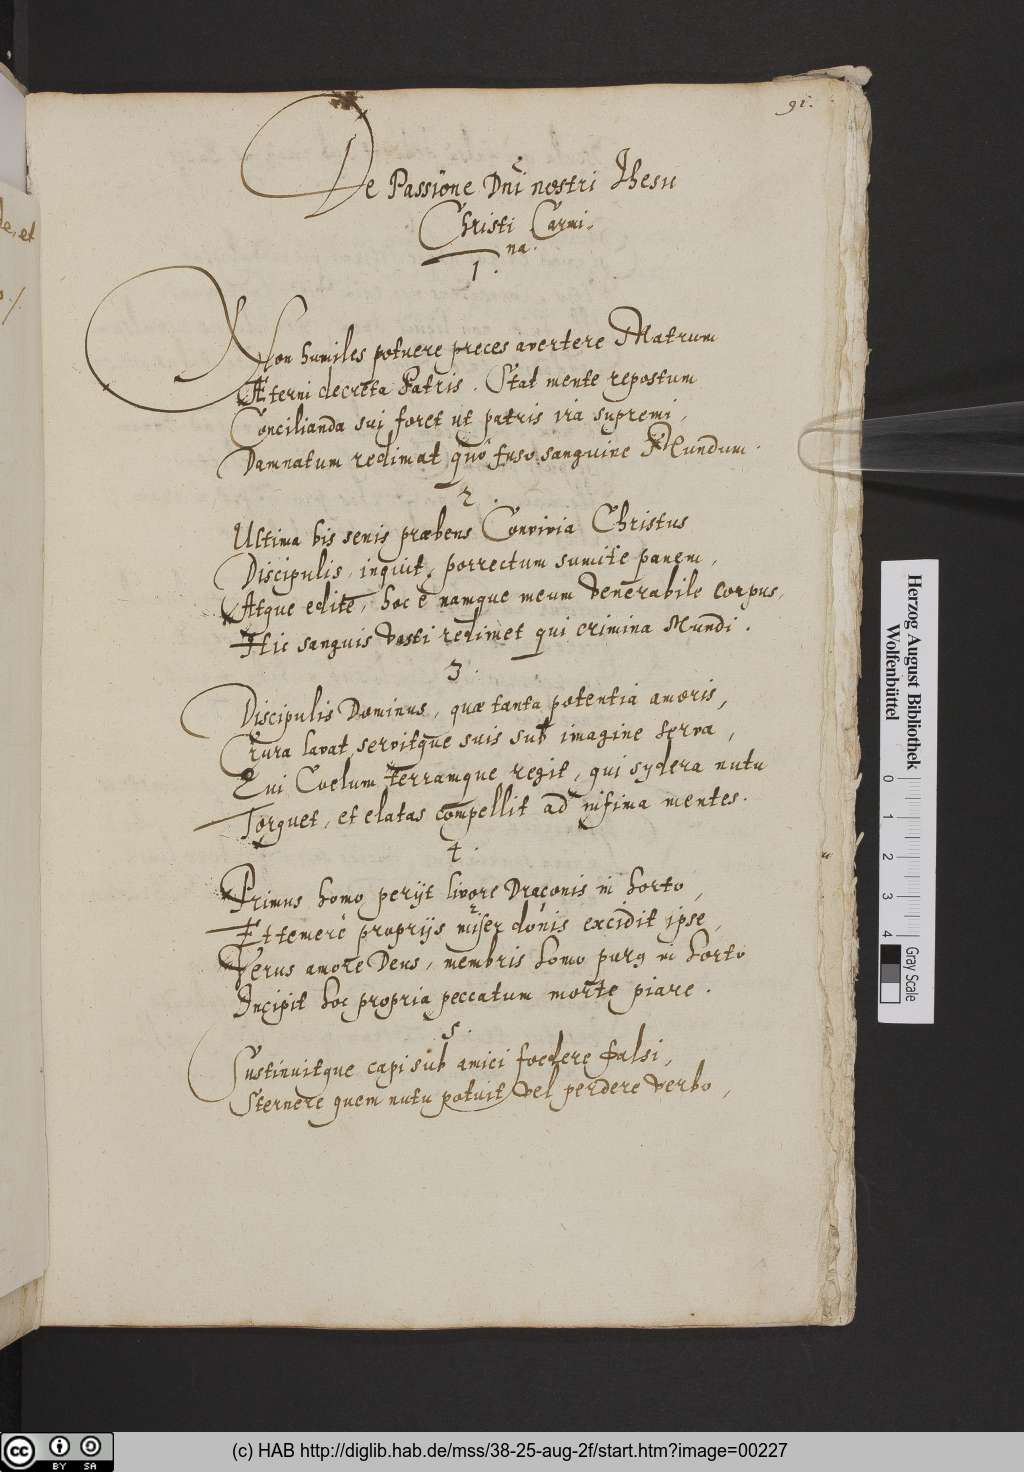 91.
De Passione Dni nostri Jhesu
Christi Carmi-
na.
1.
Non humiles potuere preces avertere Matrum
Æterni decreta Patris. Stat mente repostum
Concilianda sui foret ut patris ira supremi,
Damnatum redimat quò fuso sanguine Mundum.
2.
Ultima bis senis præbens Convivia Christus
Discipulis, inquit, porrectum sumite panem,
Atque edite, hoc ē namque meum venerabile corpus,
Hic sanguis vasti redimet qui crimina Mundi.
3.
Discipulis Dominus, quæ tanta potentia amoris,
Crura lavat, servitque suis sub imagine serva,
Qui Coelum terramque regit, qui sydera nutu
Torquet, et elatas compellit ad infima mentes.
4.
Primus homo perijt livore Draconis in horto,
Et temerè proprijs miser donis excidit ipse,
Verus amore Deus, membris homo purus in horto
Incipit hoc propria peccatum morte piare.
5.
Sustinuitque capi sub amici foedere falsi,
Sternere quem nutu potuit vel perdere verbo,
de, et
Herzog August Bibliothek
Wolfenbüttel
0 1 2 3 4
Gray Scale
cc BY SA
(c) HAB http://diglib.hab.de/mss/38-25-aug-2f/start.htm?image=00227